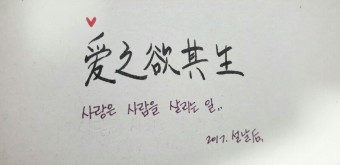 爱之欲其生
사랑은 사람을 살리는 일..
2017. 설날